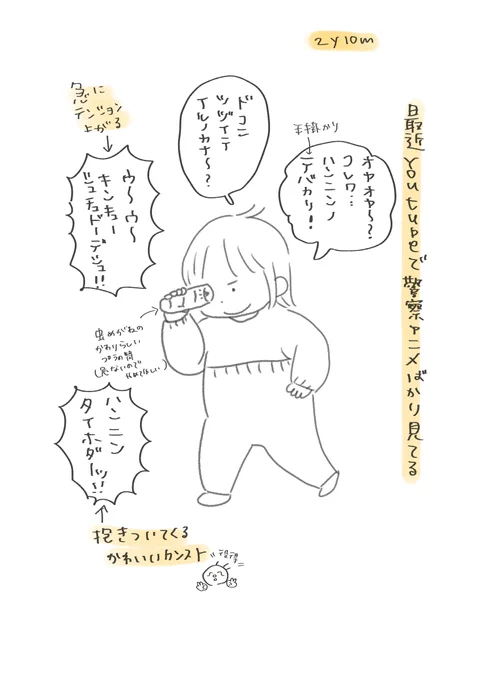 2y10m
最近YouTubeで警察アニメばかり見てる
手掛かり
オヤオヤ〜?
コレワ…
ハンニンノ
テバカリ!
ドコニ
ツヅイテ
イルノカナ〜?
急に
テンション
上がる
ウ〜ウ〜
キンキュー
シュチュドーデシュ!!
虫めがねの
かわりらしい
プラの筒
(危ないので
やめてほしい)
ハンニン
タイホダーッ!!
抱きついてくる
かわいいカンスト